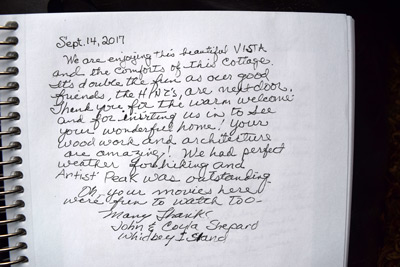 Sept. 14, 2017
We are enjoying this beautiful
and the comforts of this Cottage.
It's double the fun as our good
friends, the are next door.
Thank you for the warm welcome
and for inviting us in to see
your wonderful home! Your
wood work and architecture
are amazing! We had perfect
weather for hiking and
Artist Peak was outstanding.
Oh, your movies here
were fun to watch too-
Many Thanks
John & Shepard
Whidbey Island